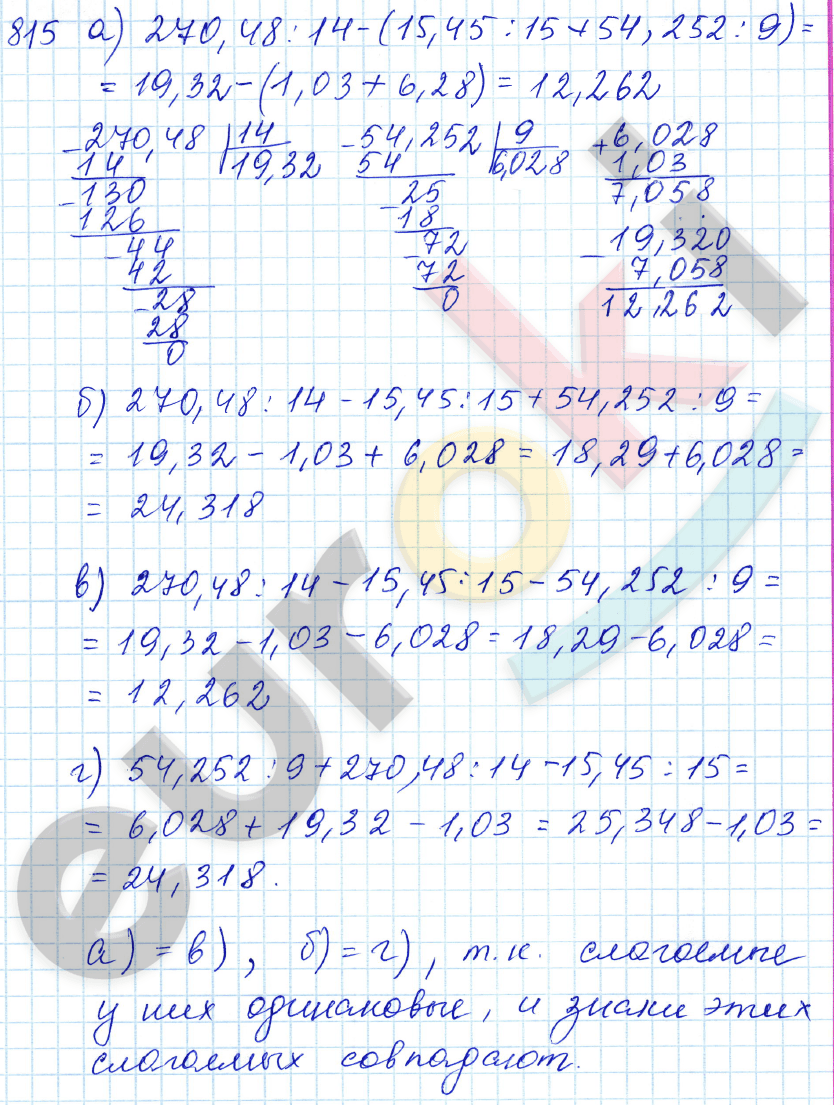 815 а) 270,48 : 14 - (15,45 : 15 + 54,252 : 9) =
= 19,32 - (1,03 + 6,28) = 12,262
- 270,48 | 14 - 54,252 | 9 + 6,028
14 19,32 54 6,028 1,03
- 130 - 25 7,058
126 18 - 19,320
- 44 - 72 7,058
42 72 12,262
- 28 0
28
0
б) 270,48 : 14 - 15,45 : 15 + 54,252 : 9 =
= 19,32 - 1,03 + 6,028 = 18,29 + 6,028 =
= 24,318
в) 270,48 : 14 - 15,45 : 15 - 54,252 : 9 =
= 19,32 - 1,03 - 6,028 = 18,29 - 6,028 =
= 12,262
г) 54,252 : 9 + 270,48 : 14 - 15,45 : 15 =
= 6,028 + 19,32 - 1,03 = 25,348 - 1,03 =
= 24,318.
а) = в), б) = г), т.к. слагаемые
у них одинаковые, и знаки этих
слагаемых совпадают.
euroki